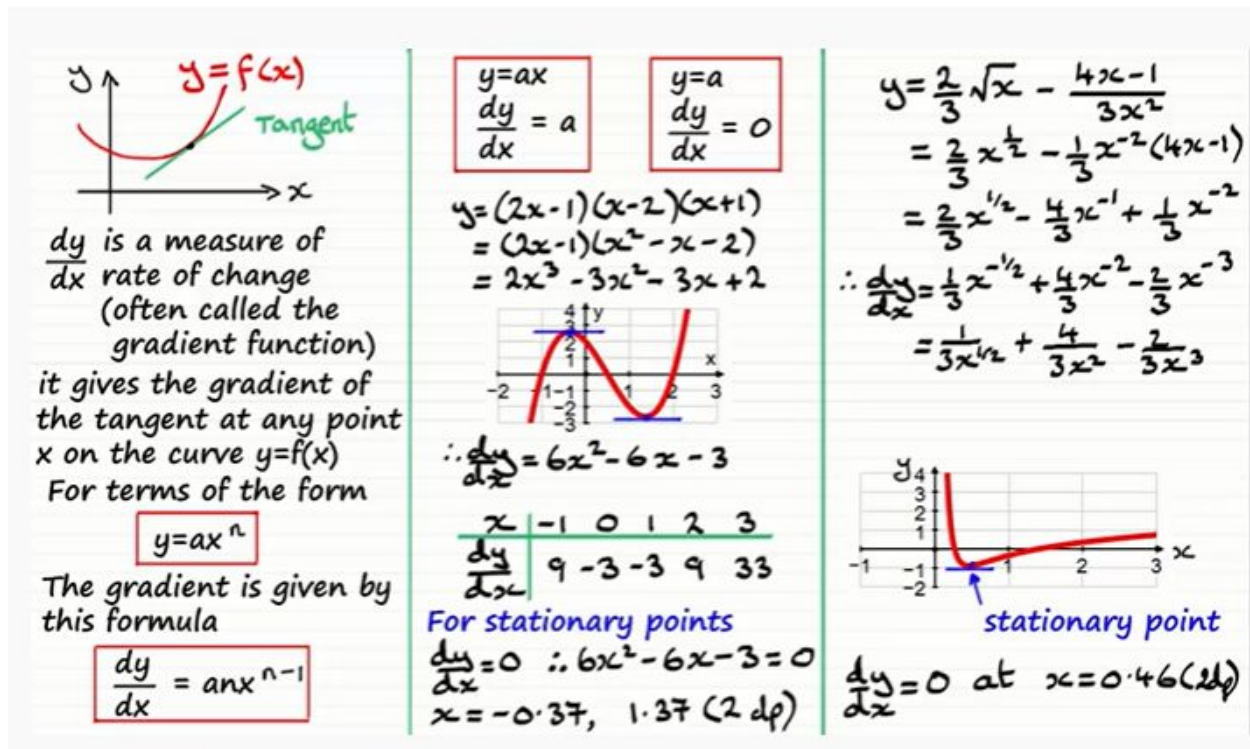 y
y=f(x)
Tangent
x
dy/dx is a measure of
rate of change
(often called the
gradient function)
it gives the gradient of
the tangent at any point
x on the curve y=f(x)
For terms of the form
y=axⁿ
The gradient is given by
this formula
dy/dx = anxⁿ⁻¹
y=ax
dy/dx = a
y=a
dy/dx = 0
y=(2x-1)(x-2)(x+1)
= (2x-1)(x²-x-2)
= 2x³-3x²-3x+2
4 y
3
2
1
x
-2 -1 1 2 3
-1
-2
-3
∴ dy/dx = 6x²-6x-3
x -1 0 1 2 3
dy/dx 9 -3 -3 9 33
For stationary points
dy/dx=0 ∴ 6x²-6x-3=0
x=-0.37, 1.37 (2 dp)
y= 2/3 √x - (4x-1)/(3x²)
= 2/3 x^(1/2) - 1/3 x⁻² (4x-1)
= 2/3 x^(1/2) - 4/3 x⁻¹ + 1/3 x⁻²
∴ dy/dx = 1/3 x^(-1/2) + 4/3 x⁻² - 2/3 x⁻³
= 1/(3x^(1/2)) + 4/(3x²) - 2/(3x³)
y 4
3
2
1
x
-1 1 2 3
-1
-2
stationary point
dy/dx=0 at x=0.46(2dp)